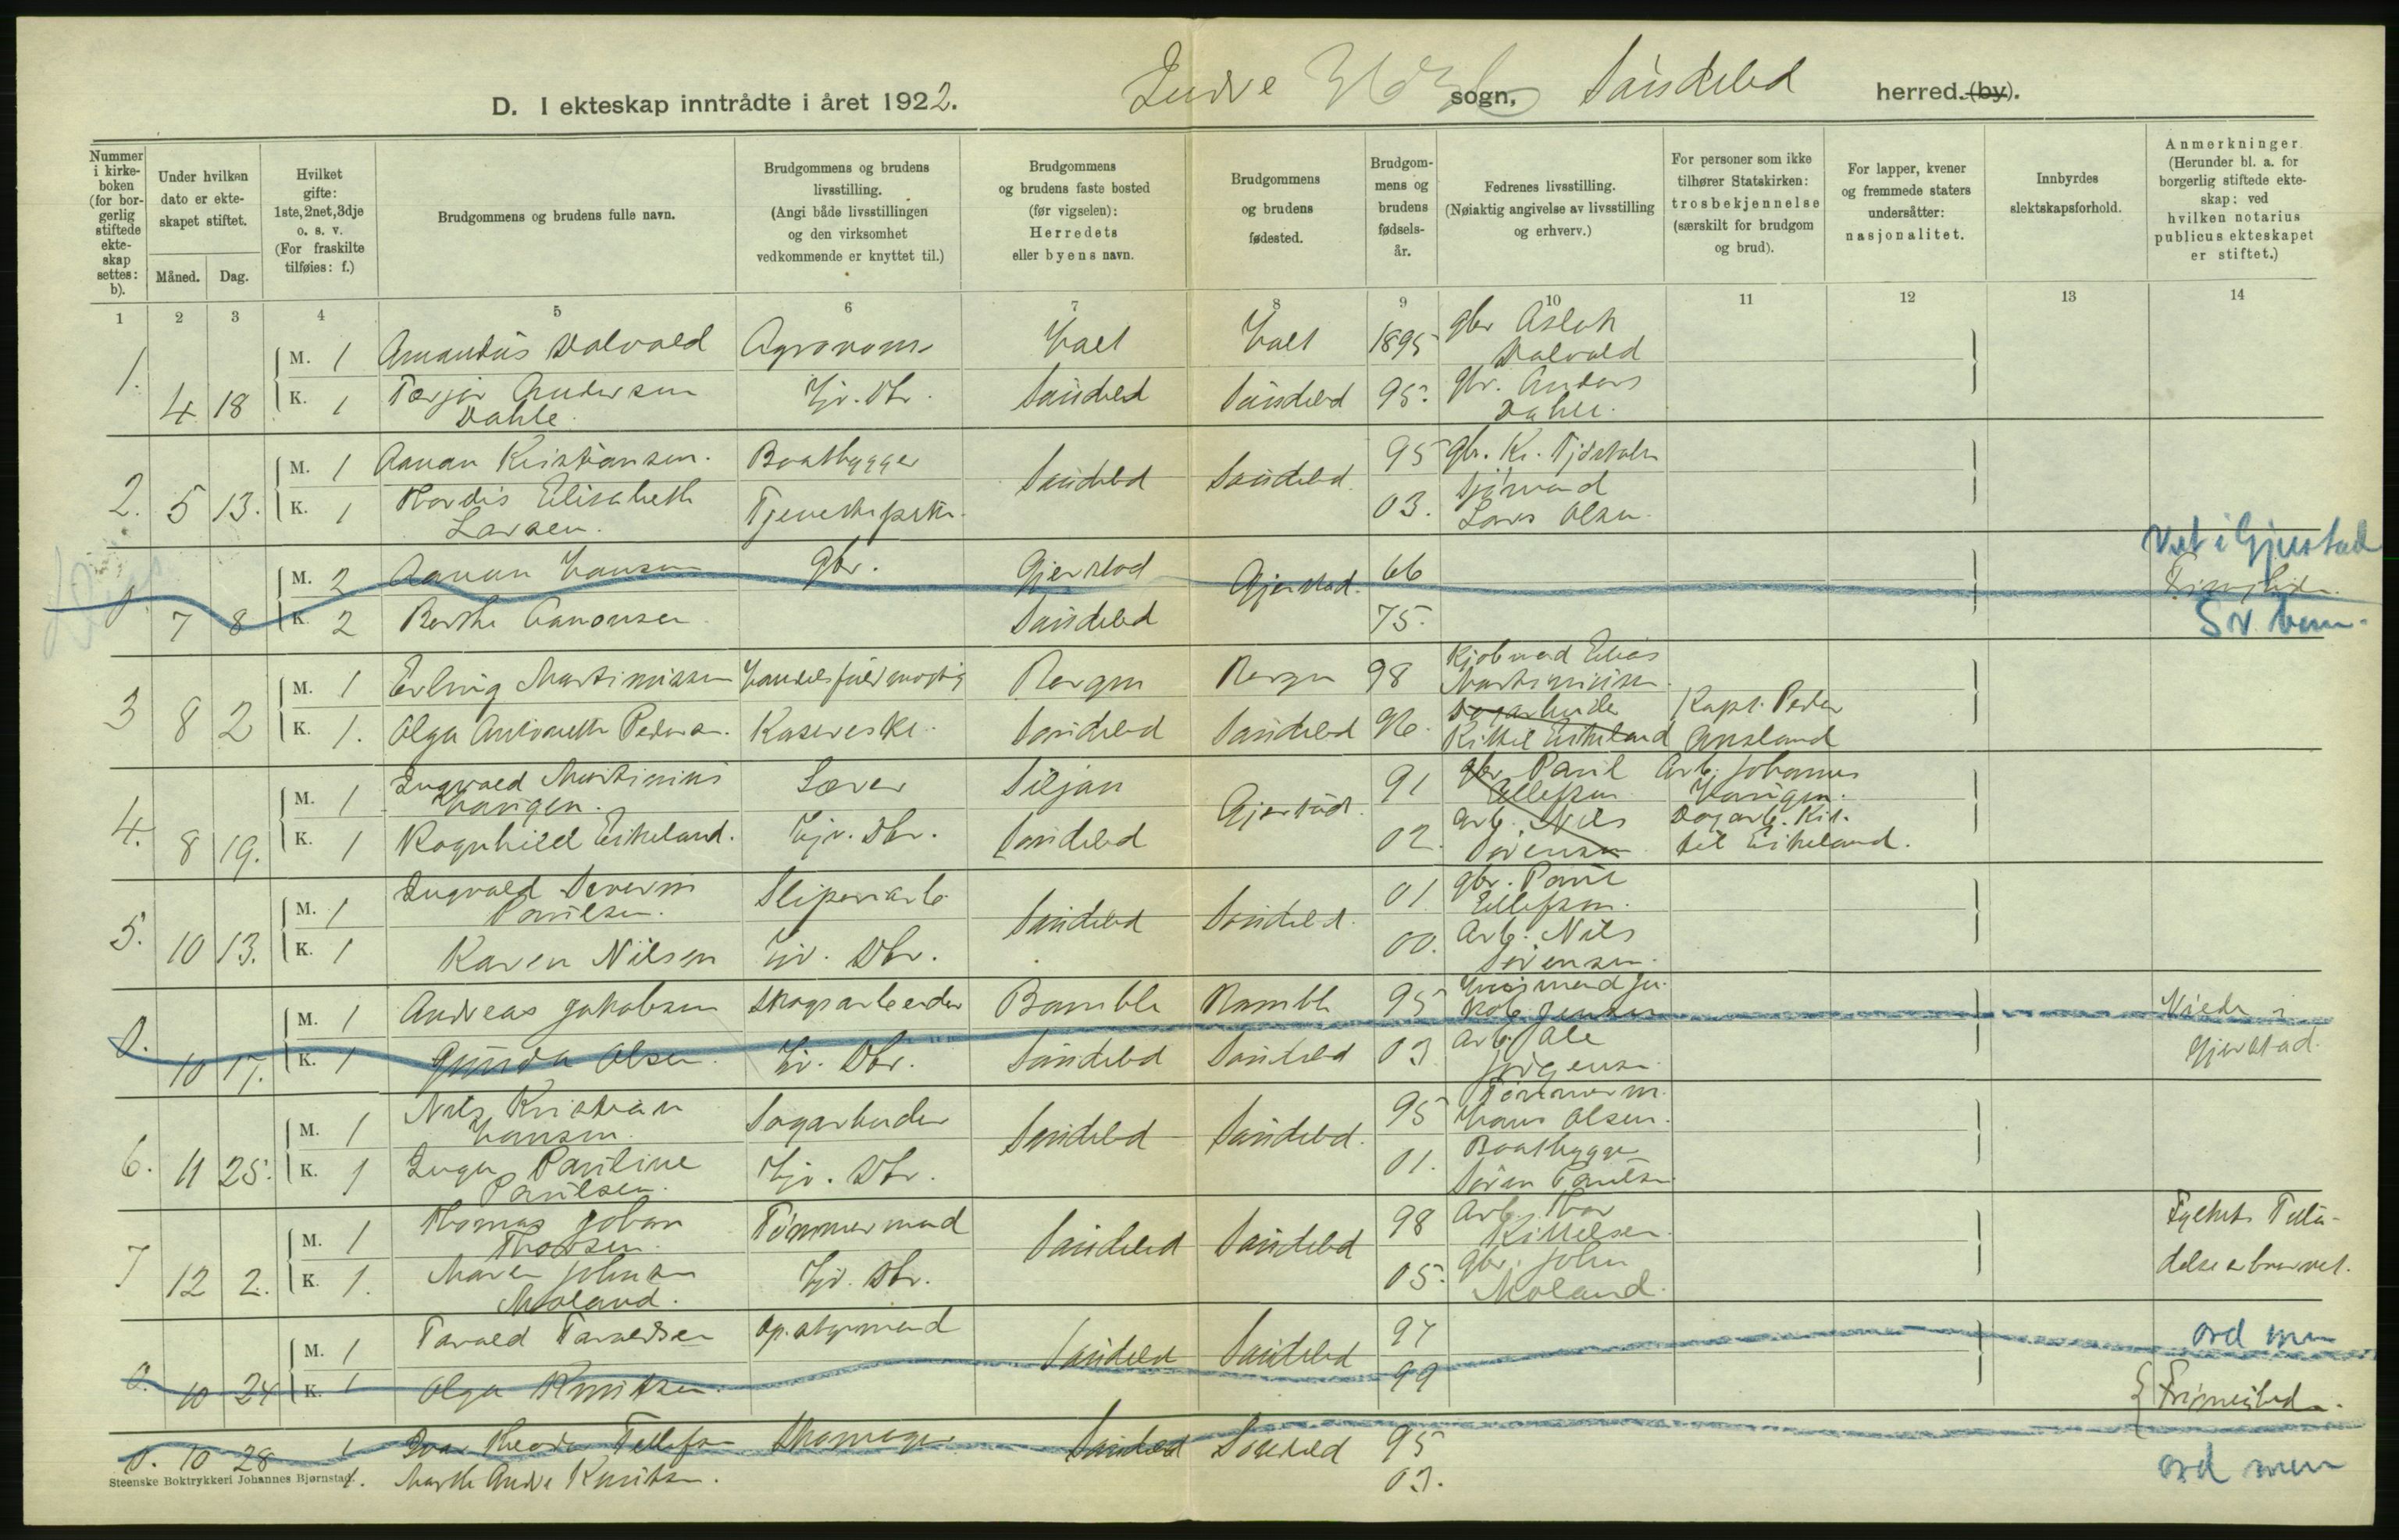 D. I ekteskap inntrådte i året 1922. Indre sogn, Søndeled herred. (by).
Nummer i kirkeboken (for borgerlig stiftede ekteskap settes: b).
Under hvilken dato er ekteskapet stiftet.
Måned. Dag.
Hvilket gifte: 1ste, 2net, 3dje o. s. v. (For fraskilte tilføies: f.)
Brudgommens og brudens fulle navn.
Brudgommens og brudens livsstilling. (Angi både livsstillingen og den virksomhet vedkommende er knyttet til.)
Brudgommens og brudens faste bosted (før vigselen): Herredets eller byens navn.
Brudgommens og brudens fødested.
Brudgommens og brudens fødselsår.
Fedrenes livsstilling. (Nøiaktig angivelse av livsstilling og erhverv.)
For personer som ikke tilhører Statskirken: trosbekjennelse (særskilt for brudgom og brud).
For lapper, kvener og fremmede staters undersåtter: nasjonalitet.
Innbyrdes slektskapsforhold.
Anmerkninger. (Herunder bl. a. for borgerlig stiftede ekteskap: ved hvilken notarius publicus ekteskapet er stiftet.)
1 2 3 4 5 6 7 8 9 10 11 12 13 14
1. 4 18
M. 1 Amandus Dalvald Agronom Holt Holt 1895 gbr Aslak Dalvald
K. 1 Terjer Andersen Dahle. Hj. Dtr. Søndeled Søndeled 95. gbr. Anders Dahle.
2. 5 13.
M. 1 Aanan Kristiansen. Baatbygger Søndeled Søndeled 95 gbr. Kr.
K. 1 Hordis Elisabeth Larsen. Tjenestepike 03. Sjømand Lars Olsen
0. 7 8
M. 2 Aanan Hansen gbr. Gjerstad Gjerstad. 66 Viet i Gjerstad
K. 2 Berthe Aanonsen Søndeled 75.
3 8 2
M. 1 Erling Martiniussen Handelsfuldmægtig Bergen Bergen 98 Kjøbmand Elias Martiniussen.
K. 1. Olga Antonette Pedersen. Kasserske. Søndeled Søndeled 96. Dagarbeider Kittel Eikeland Kapt. Peder
4. 8 19.
M. 1 Ingvald Martinius Haugen. Lærer Siljan Gjerstad. 91 gbr Paul Ellefsen Arb. Johannes Haugen.
K. 1 Ragnhild Eikeland. Hj. Dtr. Søndeled 02. Arb. Nils Sørensen Dagarb. Kittil Eikeland.
5. 10 13.
M. 1 Ingvald Severin Paulsen. Sliperiarb. Søndeled Søndeled. 01 gbr. Paul Ellefsen.
K. 1 Karen Nilsen Hj. Dtr. 00. Arb. Nils Sørensen.
0. 10 17.
M. 1 Andreas Jakobsen Skogsarbeider Bamble Bamble 95 Husmand Jakob Jensen Viede i Gjerstad.
K. 1 Gunda Olsen. Hj. Dtr. Søndeled Søndeled 03 Arb. Ole Jørgensen
6. 11 25.
M. 1 Nils Kristian Hansen. Sagarbeider Søndeled Søndeled. 95 Tømmerm. Hans Olsen.
K. 1 Inga Pauline Paulsen. Hj. Dtr. 01. Baatbygger Søren Paulsen
7 12 2.
M. 1 Thomas Johan Thorsen. Tømmermand Søndeled Søndeled 98 Arb. Thor Kittelsen. Fylkets Tilladelse
K. 1. Maren Johnsen Moland. Hj. Dtr. 05. gbr. John Moland.
0. 10 24
M. 1 Tarald Taraldsen Søndeled Søndeled 97 ord men
K. 1 Olga Knutsen. 99
0. 10 28 1 Tellefsen Skomager Søndeled Søndeled 95
1. Knutsen. 03. ord men
Steenske Boktrykkeri Johannes Bjørnstad.